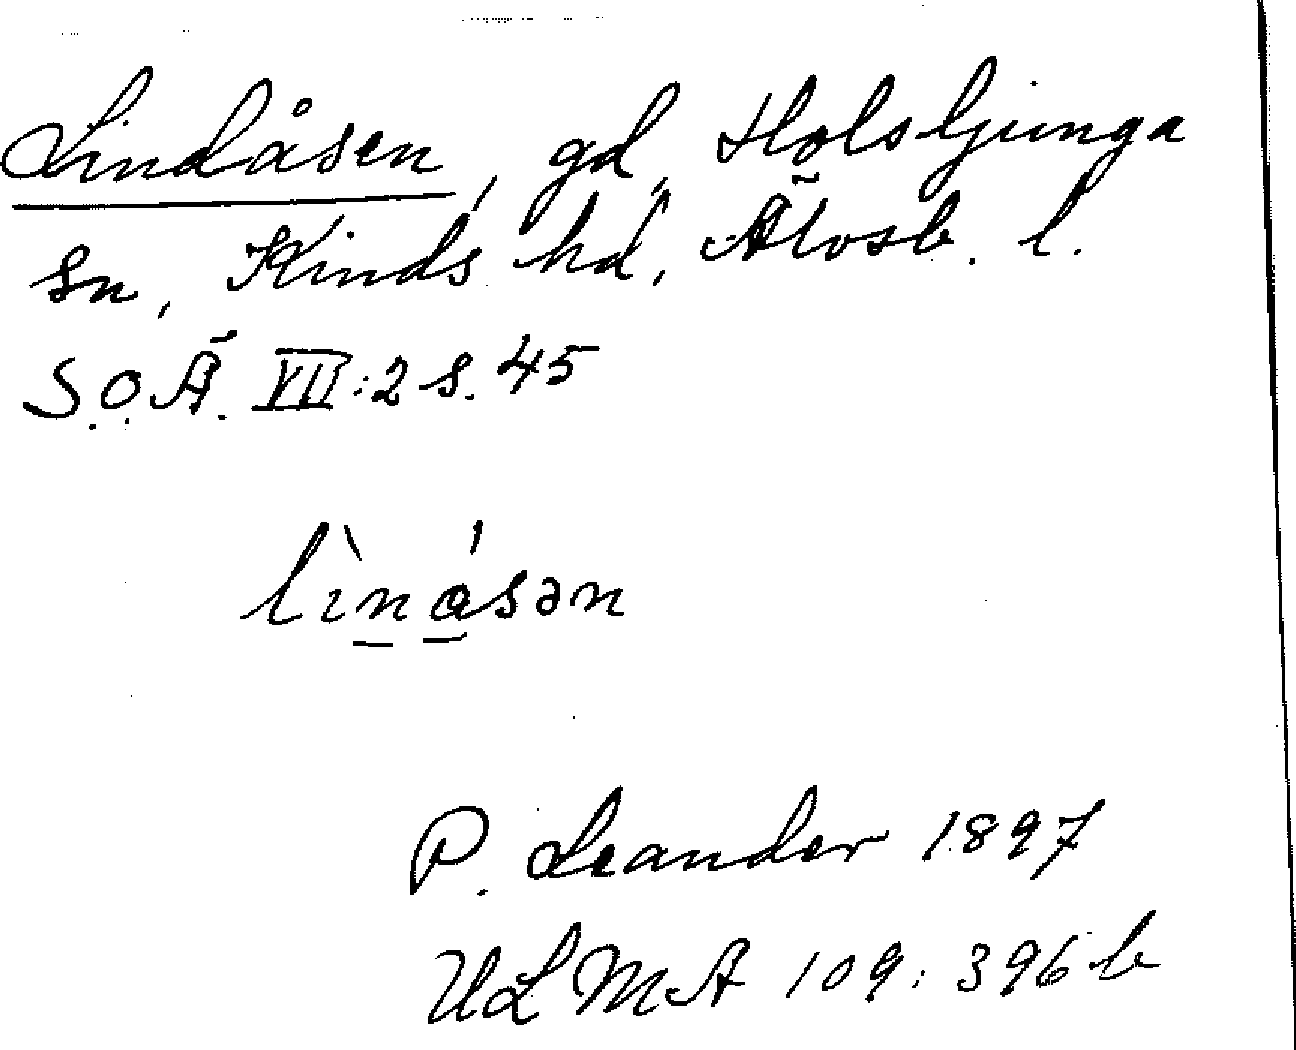 Lindåsen, gd, Holsljunga
sn, Kinds hd, Älvsb. l.
S.O.Ä. VII:2 s. 45
lìnǻ̱sən
P. Leander 1897
ULMA 109:396 b